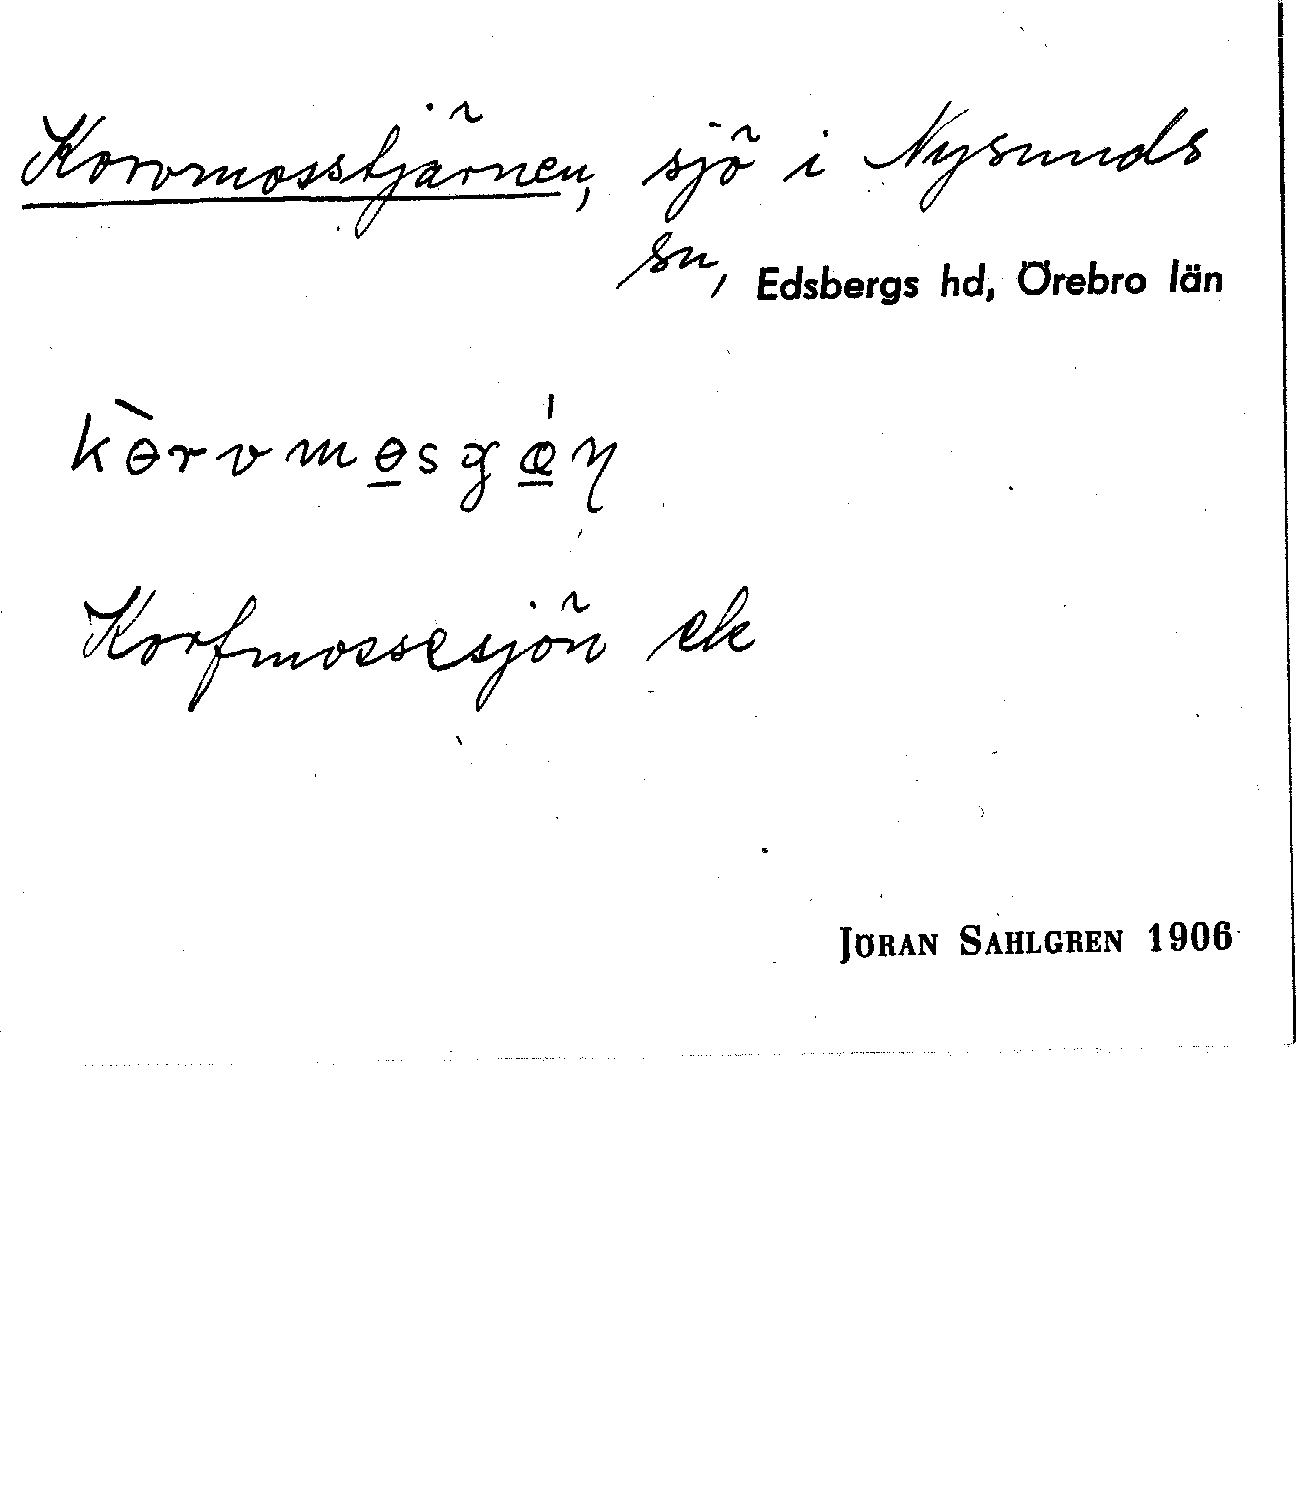 Korvmosstjärnen, sjö i Nysunds
sn, Edsbergs hd, Örebro län
kɵ̀rvmɵ̲sgœ̲́ƞ
Korfmossesjön ek
JÖRAN SAHLGREN 1906